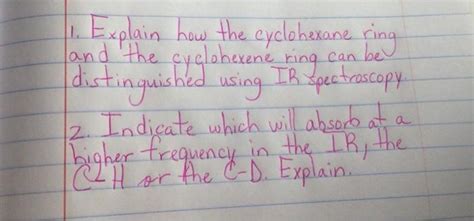 1. Explain how the cyclohexane ring
and the cyclohexene ring can be
distinguished using IR spectroscopy.
2. Indicate which will absorb at a
higher frequency in the IR, the
C-H or the C-D. Explain.